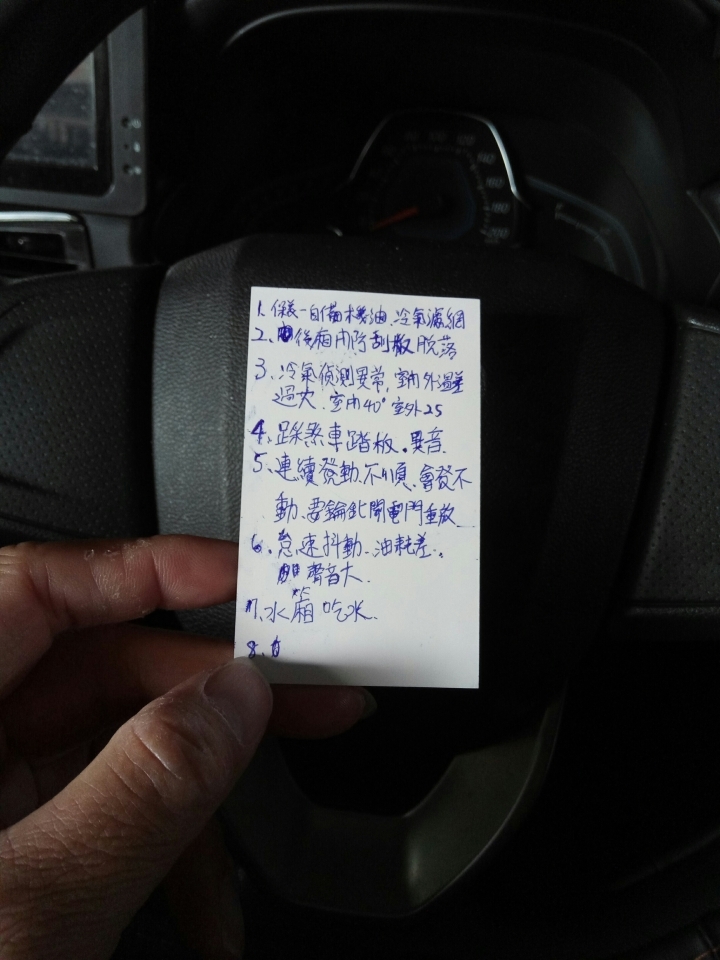 1. 保養-自備機油.冷氣濾網
2. 後廂內飾刮板脫落
3. 冷氣偵測異常,室內外溫差
過大.室內40°室外25
4. 踩煞車踏板.異音.
5. 連續發動.不順.會發不
動.要鑰匙開電門重放
6. 怠速抖動.油耗差.
聲音大.
7. 水廂吃水.
8.
140
160
180
200